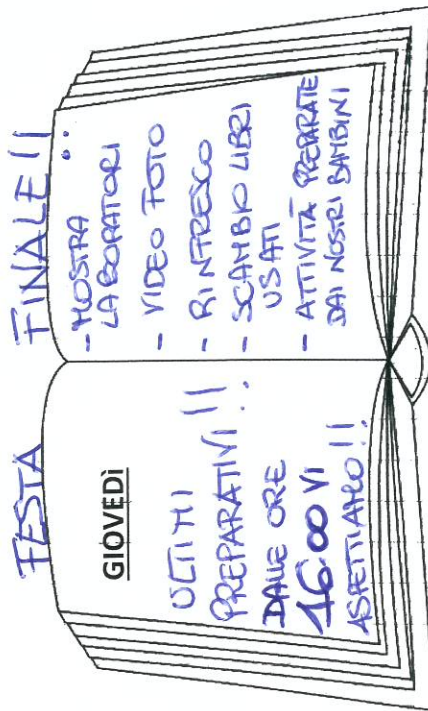 FESTA FINALE!!
GIOVEDÌ
ULTIMI
PREPARATIVI!!
DALLE ORE
16.00 VI
ASPETTIAMO!!
- MOSTRA
LABORATORI
- VIDEO FOTO
- RINFRESCO
- SCAMBIO LIBRI
USATI
- ATTIVITÀ PREPARATE
DAI NOSTRI BAMBINI